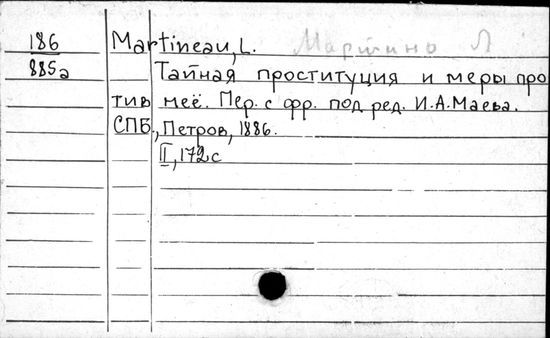 186 Martineau, L. Мартино Л
885а Тайная проституция и меры про
тив неё. Пер. с фр. под ред. И.А.Маева.
СПБ., Петров, 1886.
II, 172 с